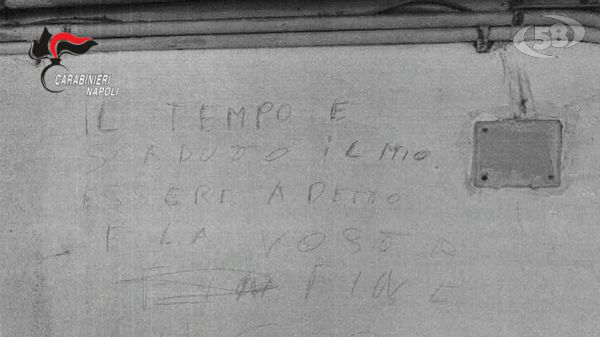 CARABINIERI
NAPOLI
58
IL TEMPO E
SCADUTO IL MIO
ESSERE A DETTO
E LA VOSTRA
FINE